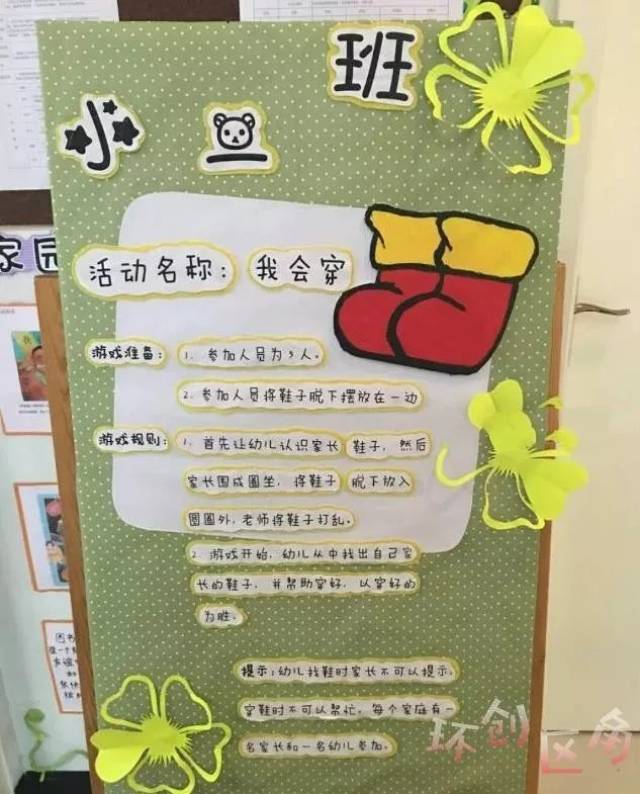 小 一 班
活动名称：我会穿
游戏准备：1. 参加人员为5人。
2. 参加人员将鞋子脱下摆放在一边
游戏规则：1. 首先让幼儿认识家长 鞋子，然后
家长围成圆坐，将鞋子 脱下放入
圆圈外，老师将鞋子打乱。
2. 游戏开始，幼儿从中找出自己家
长的鞋子，并帮助穿好，以穿好的
为胜。
提示：幼儿找鞋时家长不可以提示。
穿鞋时不可以帮忙。每个家庭有一
名家长和一名幼儿参加。
家园
环创区角